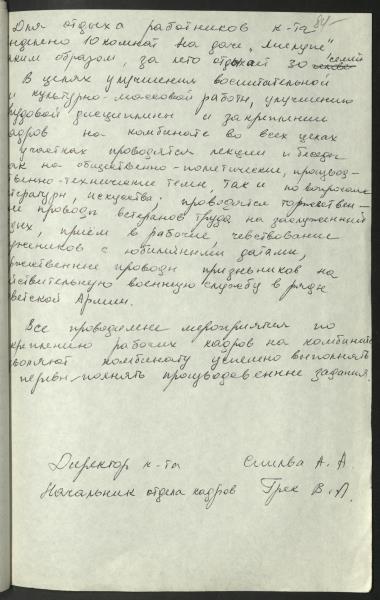 84
Для отдыха работников к-та
ыделено 10 комнат на даче „Лиелупе"
ким образом, за лето отдыхает 30 семей
В целях улучшения воспитательной
и культурно-массовой работы, улучшению
рудовой дисциплины и закрепления
адров на комбинате во всех цехах
участках проводятся лекции и беседы
ак на общественно-политические, производ-
твенно-технические темы, так и по вопросам
тературы, искусства; проводятся торжествен-
ые проводы ветеранов труда на заслуженный
ых, приём в рабочие, чевствование
уженников с юбилейными датами,
ржественные проводы призывников на
йствительную военную службу в ряды
ветской Армии.
Все проводимые мероприятия по
креплению рабочих кадров на комбинате
зволяют комбинату успешно выполнять
перевыполнять производсвенные задания.
Директор к-та А. А
Начальник отдела кадров Грек В. Л.